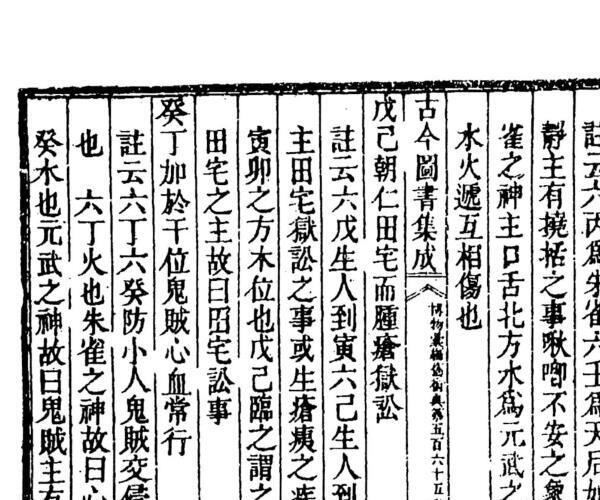 註云六丙爲朱雀六壬爲天后如
靜主有撓括之事啾唧不安之象
雀之神主口舌北方水爲元武之
水火遞互相傷也
古今圖書集成 博物彙編藝術典第五百六十五
戊己朝仁田宅而腫瘡獄訟
註云六戊生人到寅六己生人到
主田宅獄訟之事或生瘡痍之疾
寅卯之方木位也戊己臨之謂之
田宅之主故曰田宅訟事
癸丁加於干位鬼賊心血常行
註云六丁六癸防小人鬼賊交侵
也 六丁火也朱雀之神故曰心
癸木也元武之神故曰鬼賊主有